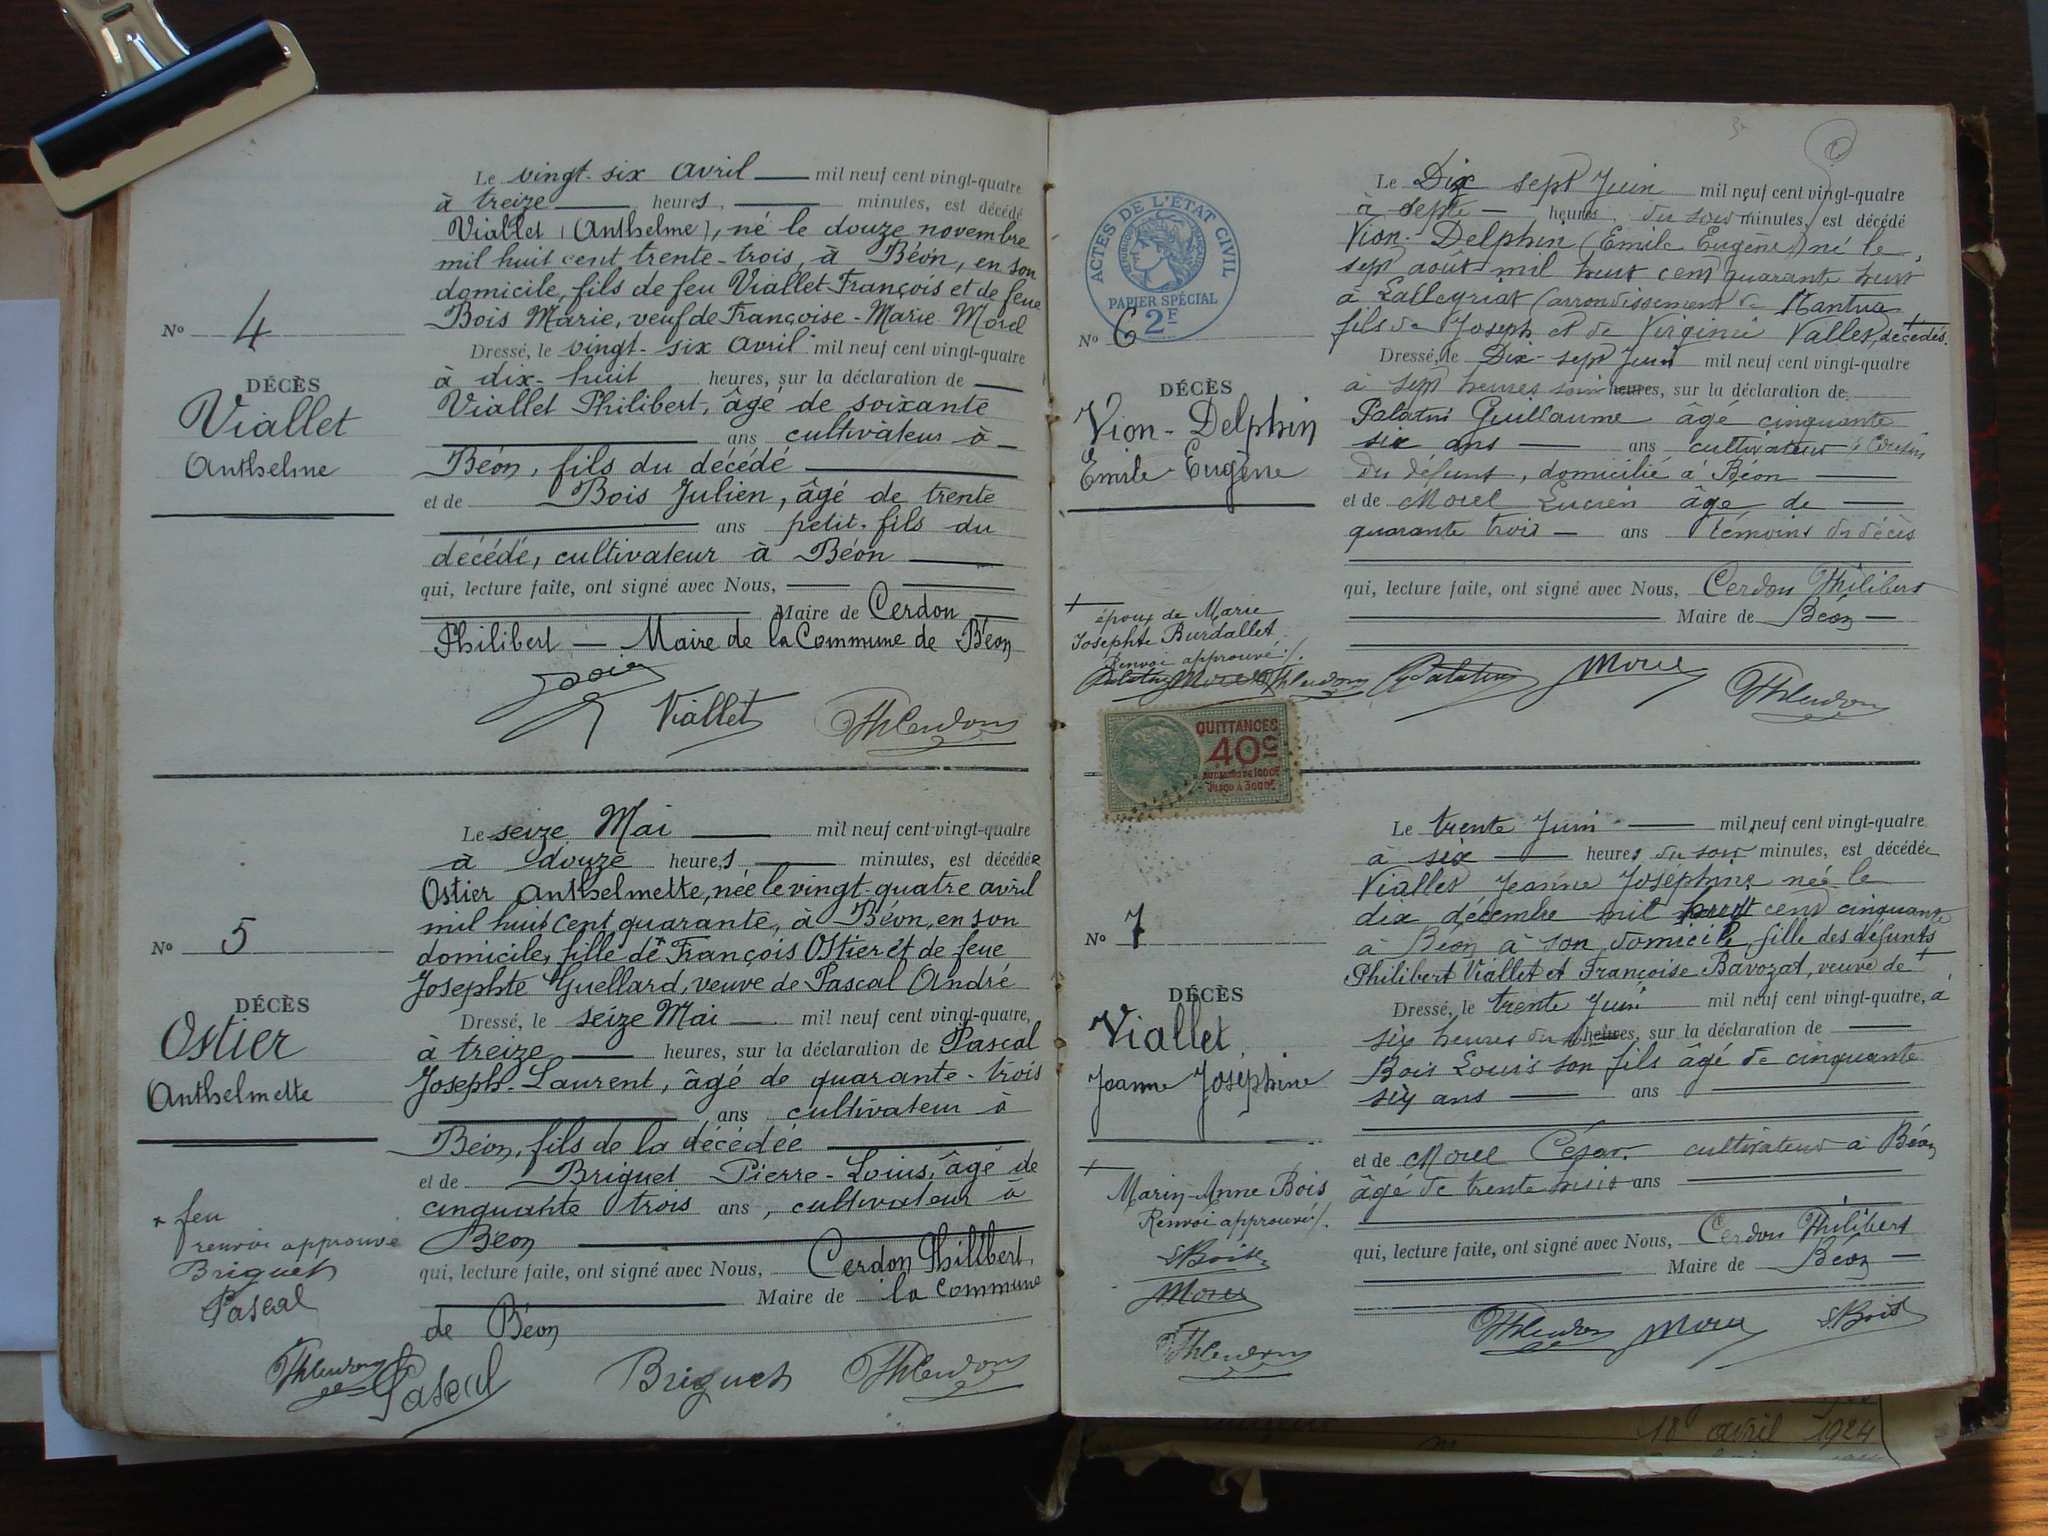 Le vingt-six avril mil neuf cent vingt-quatre
à treize heures, minutes, est décédé
Viallet (Anthelme), né le douze novembre
mil huit cent trente-trois, à Béon, en son
domicile, fils de feu Viallet François et de feue
Bois Marie, veuf de Françoise-Marie Morel
No 4
DÉCÈS
Viallet
Anthelme
Dressé, le vingt-six avril mil neuf cent vingt-quatre
à dix-huit heures, sur la déclaration de
Viallet Philibert, âgé de soixante
ans cultivateur à
Béon, fils du décédé
et de Bois Julien, âgé de trente
ans petit-fils du
décédé, cultivateur à Béon
qui, lecture faite, ont signé avec Nous,
Maire de Cerdon
Philibert — Maire de la Commune de Béon
Viallet
Le seize Mai mil neuf cent vingt-quatre
à douze heures minutes, est décédée
Ostier Anthelmette, née le vingt-quatre avril
mil huit cent quarante, à Béon, en son
domicile, fille de + François Ostier et de feue
Josephte Guellard, veuve de Pascal André
No 5
DÉCÈS
Ostier
Anthelmette
Dressé, le seize Mai mil neuf cent vingt-quatre,
à treize heures, sur la déclaration de Pascal
Joseph-Laurent, âgé de quarante-trois
ans cultivateur à
Béon, fils de la décédée
et de Briguet Pierre-Louis, âgé de
cinquante trois ans, cultivateur à
Béon
qui, lecture faite, ont signé avec Nous, Cerdon Philibert,
Maire de la Commune
de Béon
+ feu
renvoi approuvé
Briguet
Pascal
Pascal Briguet
ACTES DE L'ÉTAT CIVIL
RÉPUBLIQUE FRANÇAISE
PAPIER SPÉCIAL
2F
Le Dix sept Juin mil neuf cent vingt-quatre
à sept heures, du soir minutes, est décédé
Vion-Delphin (Emile Eugène) né le
sept août mil huit cent quarante huit
à Lalleyriat (arrondissement de Mantua
fils de Joseph et de Virginie Vallet, décédés. +
No 6
DÉCÈS
Vion-Delphin
Emile Eugène
Dressé, le Dix-sept Juin mil neuf cent vingt-quatre
à sept heures soir heures, sur la déclaration de
Palatin Guillaume âgé cinquante
six ans ans cultivateur & Cousin
du défunt, domicilié à Béon
et de Morel Lucien âgé de
quarante trois ans témoins du décès
qui, lecture faite, ont signé avec Nous, Cerdon Philibert
Maire de Béon
+
époux de Marie
Josephte Burdallet
Renvoi approuvé /.
Palatin Morel
QUITTANCES
40c
Jusqu'à 3000F
Le trente Juin mil neuf cent vingt-quatre
à six heures du soir minutes, est décédée
Viallet Jeanne Joséphine née le
dix décembre mil huit cent cinquante
à Béon à son domicile, fille des défunts
Philibert Viallet et Françoise Bavozat, veuve de +
No 7
DÉCÈS
Viallet
Jeanne Joséphine
Dressé, le trente Juin mil neuf cent vingt-quatre, à
six heures du heures, sur la déclaration de
Bois Louis son fils âgé de cinquante
six ans ans
et de Morel César cultivateur à Béon
âgé de trente ans
qui, lecture faite, ont signé avec Nous, Cerdon Philibert
Maire de Béon
+
Marin-Anne Bois
Renvoi approuvé /.
LBois
Morel
Morel LBois
18 avril 1924